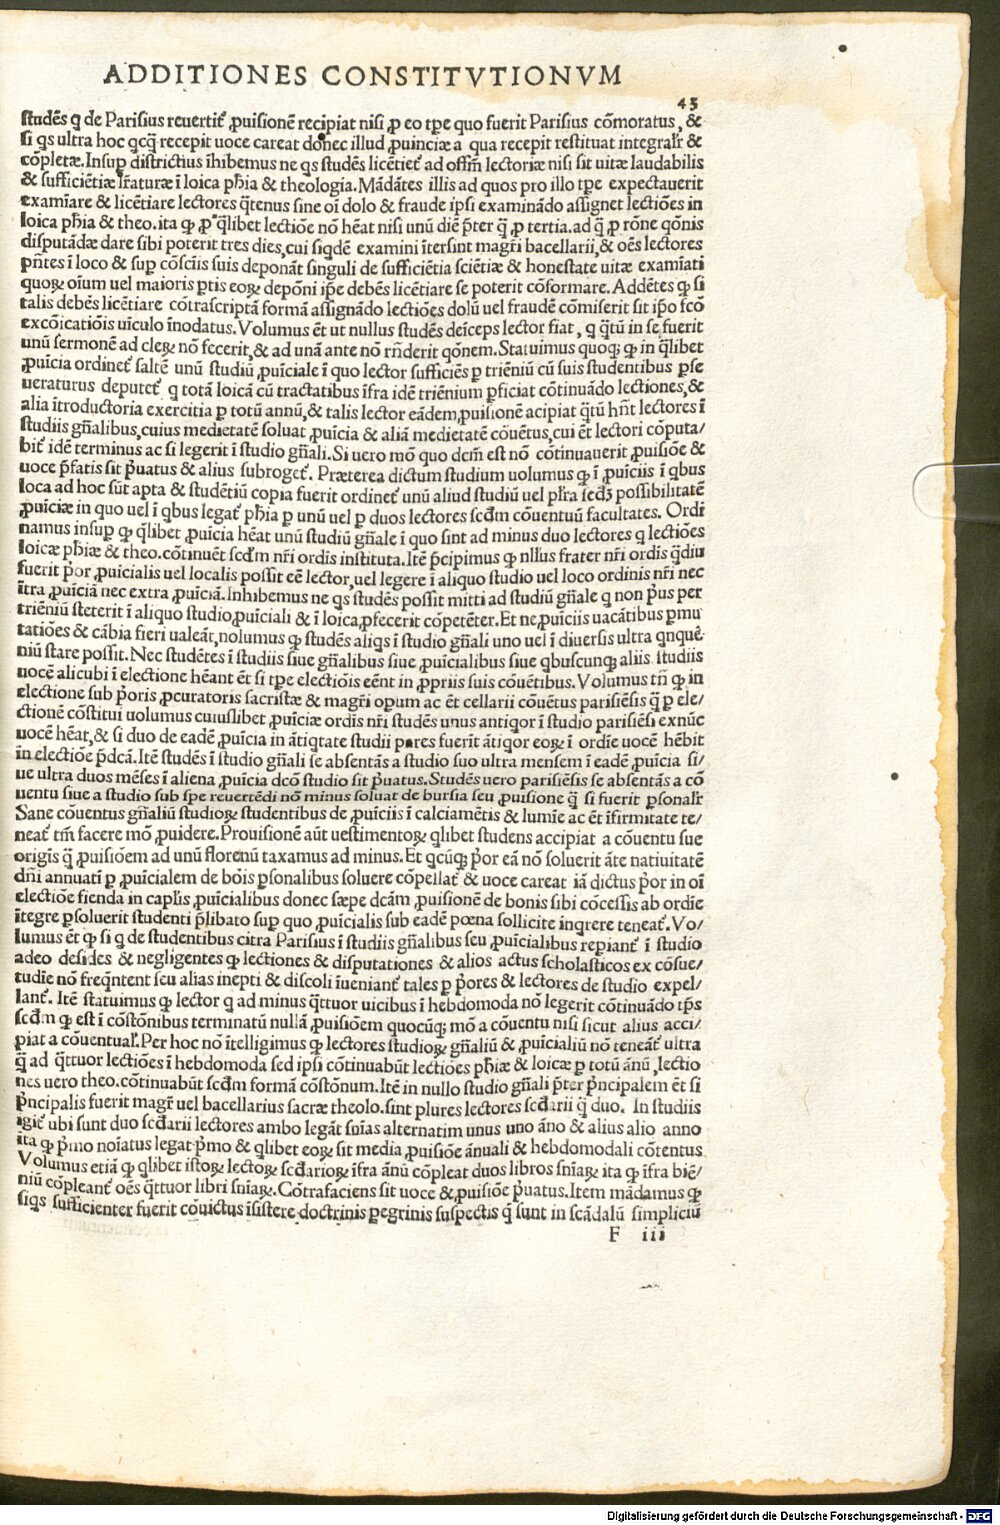 ADDITIONES CONSTITVTIONVM
43
studēs q de Parisius reuertit̄ ꝓuisionē recipiat nisi ꝓ eo tꝑe quo fuerit Parisius cōmoratus, &
si qs ultra hoc qcq̄ recepit uoce careat donec illud ꝓuinciæ a qua recepit restituat integralr̄ &
cōpletæ. Insuꝑ districtius īhibemus ne qs studēs licētiet̄ ad offm̄ lectoriæ nisi sit uitæ laudabilis
& sufficiētiæ lr̄aturæ ī loica ph̄ia & theologia. Mādātes illis ad quos pro illo tꝑe expectauerit
examīare & licētiare lectores q̄tenus sine oī dolo & fraude ipsi examinādo assignet lectiōes in
loica ph̄ia & theo. ita ꝙ ꝓ q̄libet lectiōe nō hēat nisi unū diē p̄ter q̄ ꝓ tertia. ad q̄ ꝓ rōne qōnis
disputādæ dare sibi poterit tres dies, cui siqdē examini ītersint magr̄i bacellarii, & oēs lectores
pn̄tes ī loco & suꝑ cōsciīs suis deponāt singuli de sufficiētia sciētiæ & honestate uitæ examīati
quoꝝ oīum uel maioris ꝑtis eoꝝ depōni ip̄e debēs licētiare se poterit cōformare. Addētes ꝙ si
talis debēs licētiare cōtrascriptā formā assignādo lectiōes dolū uel fraudē cōmiserit sit ip̄o fcō
excōicatiōis uīculo īnodatus. Volumus ēt ut nullus studēs deīceps lector fiat, q q̄tū in se fuerit
unū sermonē ad cleꝝ nō fecerit, & ad unā ante nō rn̄derit qōnem. Statuimus quoq; ꝙ in q̄libet
ꝓuīcia ordinet̄ saltē unū studiū ꝓuīciale ī quo lector sufficiēs ꝑ triēniū cū suis studentibus ꝑse
ueraturus deputet̄ q totā loicā cū tractatibus īfra idē triēnium ꝑficiat cōtinuādo lectiones, &
alia ītroductoria exercitia ꝑ totū annū, & talis lector eādem ꝓuisionē acipiat q̄tū hn̄t lectores ī
studiis gn̄alibus, cuius medietatē soluat ꝓuīcia & aliā medietatē cōuētus, cui ēt lectori cōputa/
bit̄ idē terminus ac si legerit ī studio gn̄ali. Si uero mō quo dcm̄ est nō cōtinuauerit ꝓuisiōe &
uoce p̄fatis sit p̄uatus & alius subroget̄. Præterea dictum studium uolumus ꝙ ī ꝓuīciis ī qbus
loca ad hoc sūt apta & studētiū copia fuerit ordinet̄ unū aliud studiū uel plr̄a scd̄ꝫ possibilitatē
ꝓuīciæ in quo uel ī qbus legat̄ ph̄ia ꝑ unū uel ꝑ duos lectores scd̄m cōuentuū facultates. Ordi
namus insuꝑ ꝙ q̄libet ꝓuīcia hēat unū studiū gn̄ale ī quo sint ad minus duo lectores q lectiōes
loicæ ph̄iæ & theo. cōtinuēt scd̄m nr̄i ordis instituta. Itē p̄cipimus ꝙ nll̄us frater nr̄i ordis q̄diu
fuerit p̄or ꝓuīcialis uel localis possit eē lector, uel legere ī aliquo studio uel loco ordinis nr̄i nec
ītra ꝓuīciā nec extra ꝓuīciā. Inhibemus ne qs studēs possit mitti ad studiū gn̄ale q non p̄us per
triēniū steterit ī aliquo studio ꝓuīciali & ī loica ꝓfecerit cōpetēter. Et ne ꝓuīciis uacātibus ꝑmu
tatiōes & cābia fieri ualeāt, nolumus ꝙ studēs aliqs ī studio gn̄ali uno uel ī diuersis ultra qnquē
niū stare possit. Nec studētes ī studiis siue gn̄alibus siue ꝓuīcialibus siue qbuscunq; aliis studiis
uocē alicubi ī electione hēant ēt si tꝑe electiōis eēnt in ꝓpriis suis cōuētibus. Volumus tn̄ ꝙ in
electione sub p̄oris ꝓcuratoris sacristæ & magr̄i opum ac ēt cellarii cōuētus parisiēsis q̄ ꝑ ele/
ctionē cōstitui uolumus cuiuslibet ꝓuīciæ ordīs nr̄i studēs unus antiqor ī studio parisiēsi exnūc
uocē hēat, & si duo de eadē ꝓuīcia in ātiqtate studii pares fuerīt ātiqor eoꝝ ī ordīe uocē hēbit
in electiōe p̄dcā. Itē studēs ī studio gn̄ali se absentās a studio suo ultra mensem ī eadē ꝓuīcia si/
ue ultra duos mēses ī aliena ꝓuīcia dcō studio sit p̄uatus. Studēs uero parisiēsis se absentās a cō
uentu siue a studio sub spe reuertēdi nō minus soluat de bursia seu ꝓuisione q̄ si fuerit ꝑsonalr̄
Sane cōuentus gn̄aliū studioꝝ studentibus de ꝓuīciis ī calciamētis & lumīe ac ēt īfirmitate te/
neat̄ tm̄ facere mō ꝓuidere. Prouisionē aūt uestimentoꝝ qlibet studens accipiat a cōuentu sue
originis q̄ ꝓuisiōem ad unū florenū taxamus ad minus. Et qcūq; p̄or eā nō soluerit āte natiuitatē
dn̄i annuatī ꝑ ꝓuīcialem de bōis ꝑsonalibus soluere cōpellat̄ & uoce careat iā dictus p̄or in oī
electiōe fienda in capl̄is ꝓuīcialibus donec sæpe dcām ꝓuisionē de bonis sibi cōcessis ab ordīe
ītegre ꝑsoluerit studenti p̄libato suꝑ quo ꝓuīcialis sub eadē pœna sollicite inqrere teneat̄. Vo/
lumus ēt ꝙ si q de studentibus citra Parisius ī studiis gn̄alibus seu ꝓuīcialibus repiant̄ ī studio
adeo desides & negligentes ꝙ lectiones & disputationes & alios actus scholasticos ex cōsue/
tudīe nō freq̄ntent seu alias inepti & discoli īueniant̄ tales ꝑ p̄ores & lectores de studio expel/
lant̄. Itē statuimus ꝙ lector q ad minus q̄ttuor uicibus ī hebdomoda nō legerit cōtinuādo tp̄s
scd̄m ꝙ est ī cōstōnibus terminatū nullā ꝓuisiōem quocūq; mō a cōuentu nisi sicut alius acci/
piat a cōuentual̄. Per hoc nō ītelligimus ꝙ lectores studioꝝ gn̄aliū & ꝓuīcialiū nō teneāt̄ ultra
q̄ ad q̄ttuor lectiōes ī hebdomoda sed ipsi cōtinuabūt lectiōes ph̄iæ & loicæ ꝑ totū ānū, lectio
nes uero theo. cōtinuabūt scd̄m formā cōstōnum. Itē in nullo studio gn̄ali p̄ter p̄ncipalem ēt si
p̄ncipalis fuerit magr̄ uel bacellarius sacræ theolo. sint plures lectores scd̄arii q̄ duo. In studiis
igit̄ ubi sunt duo scd̄arii lectores ambo legāt sn̄ias alternatim unus uno āno & alius alio anno
ita ꝙ p̄mo noīatus legat p̄mo & qlibet eoꝝ sit media ꝓuisiōe ānuali & hebdomodali cōtentus
Volumus etiā ꝙ qlibet istoꝝ lectoꝝ scd̄arioꝝ īfra ānū cōpleat duos libros sn̄iaꝝ ita ꝙ īfra biē/
niū cōpleant̄ oēs q̄ttuor libri sn̄iaꝝ. Cōtrafaciens sit uoce & ꝓuisiōe p̄uatus. Item mādamus ꝙ
siqs sufficienter fuerit cōuictus īsistere doctrinis pegrinis suspectis q̄ sunt in scādalū simpliciū
F iii
Digitalisierung gefördert durch die Deutsche Forschungsgemeinschaft - DFG